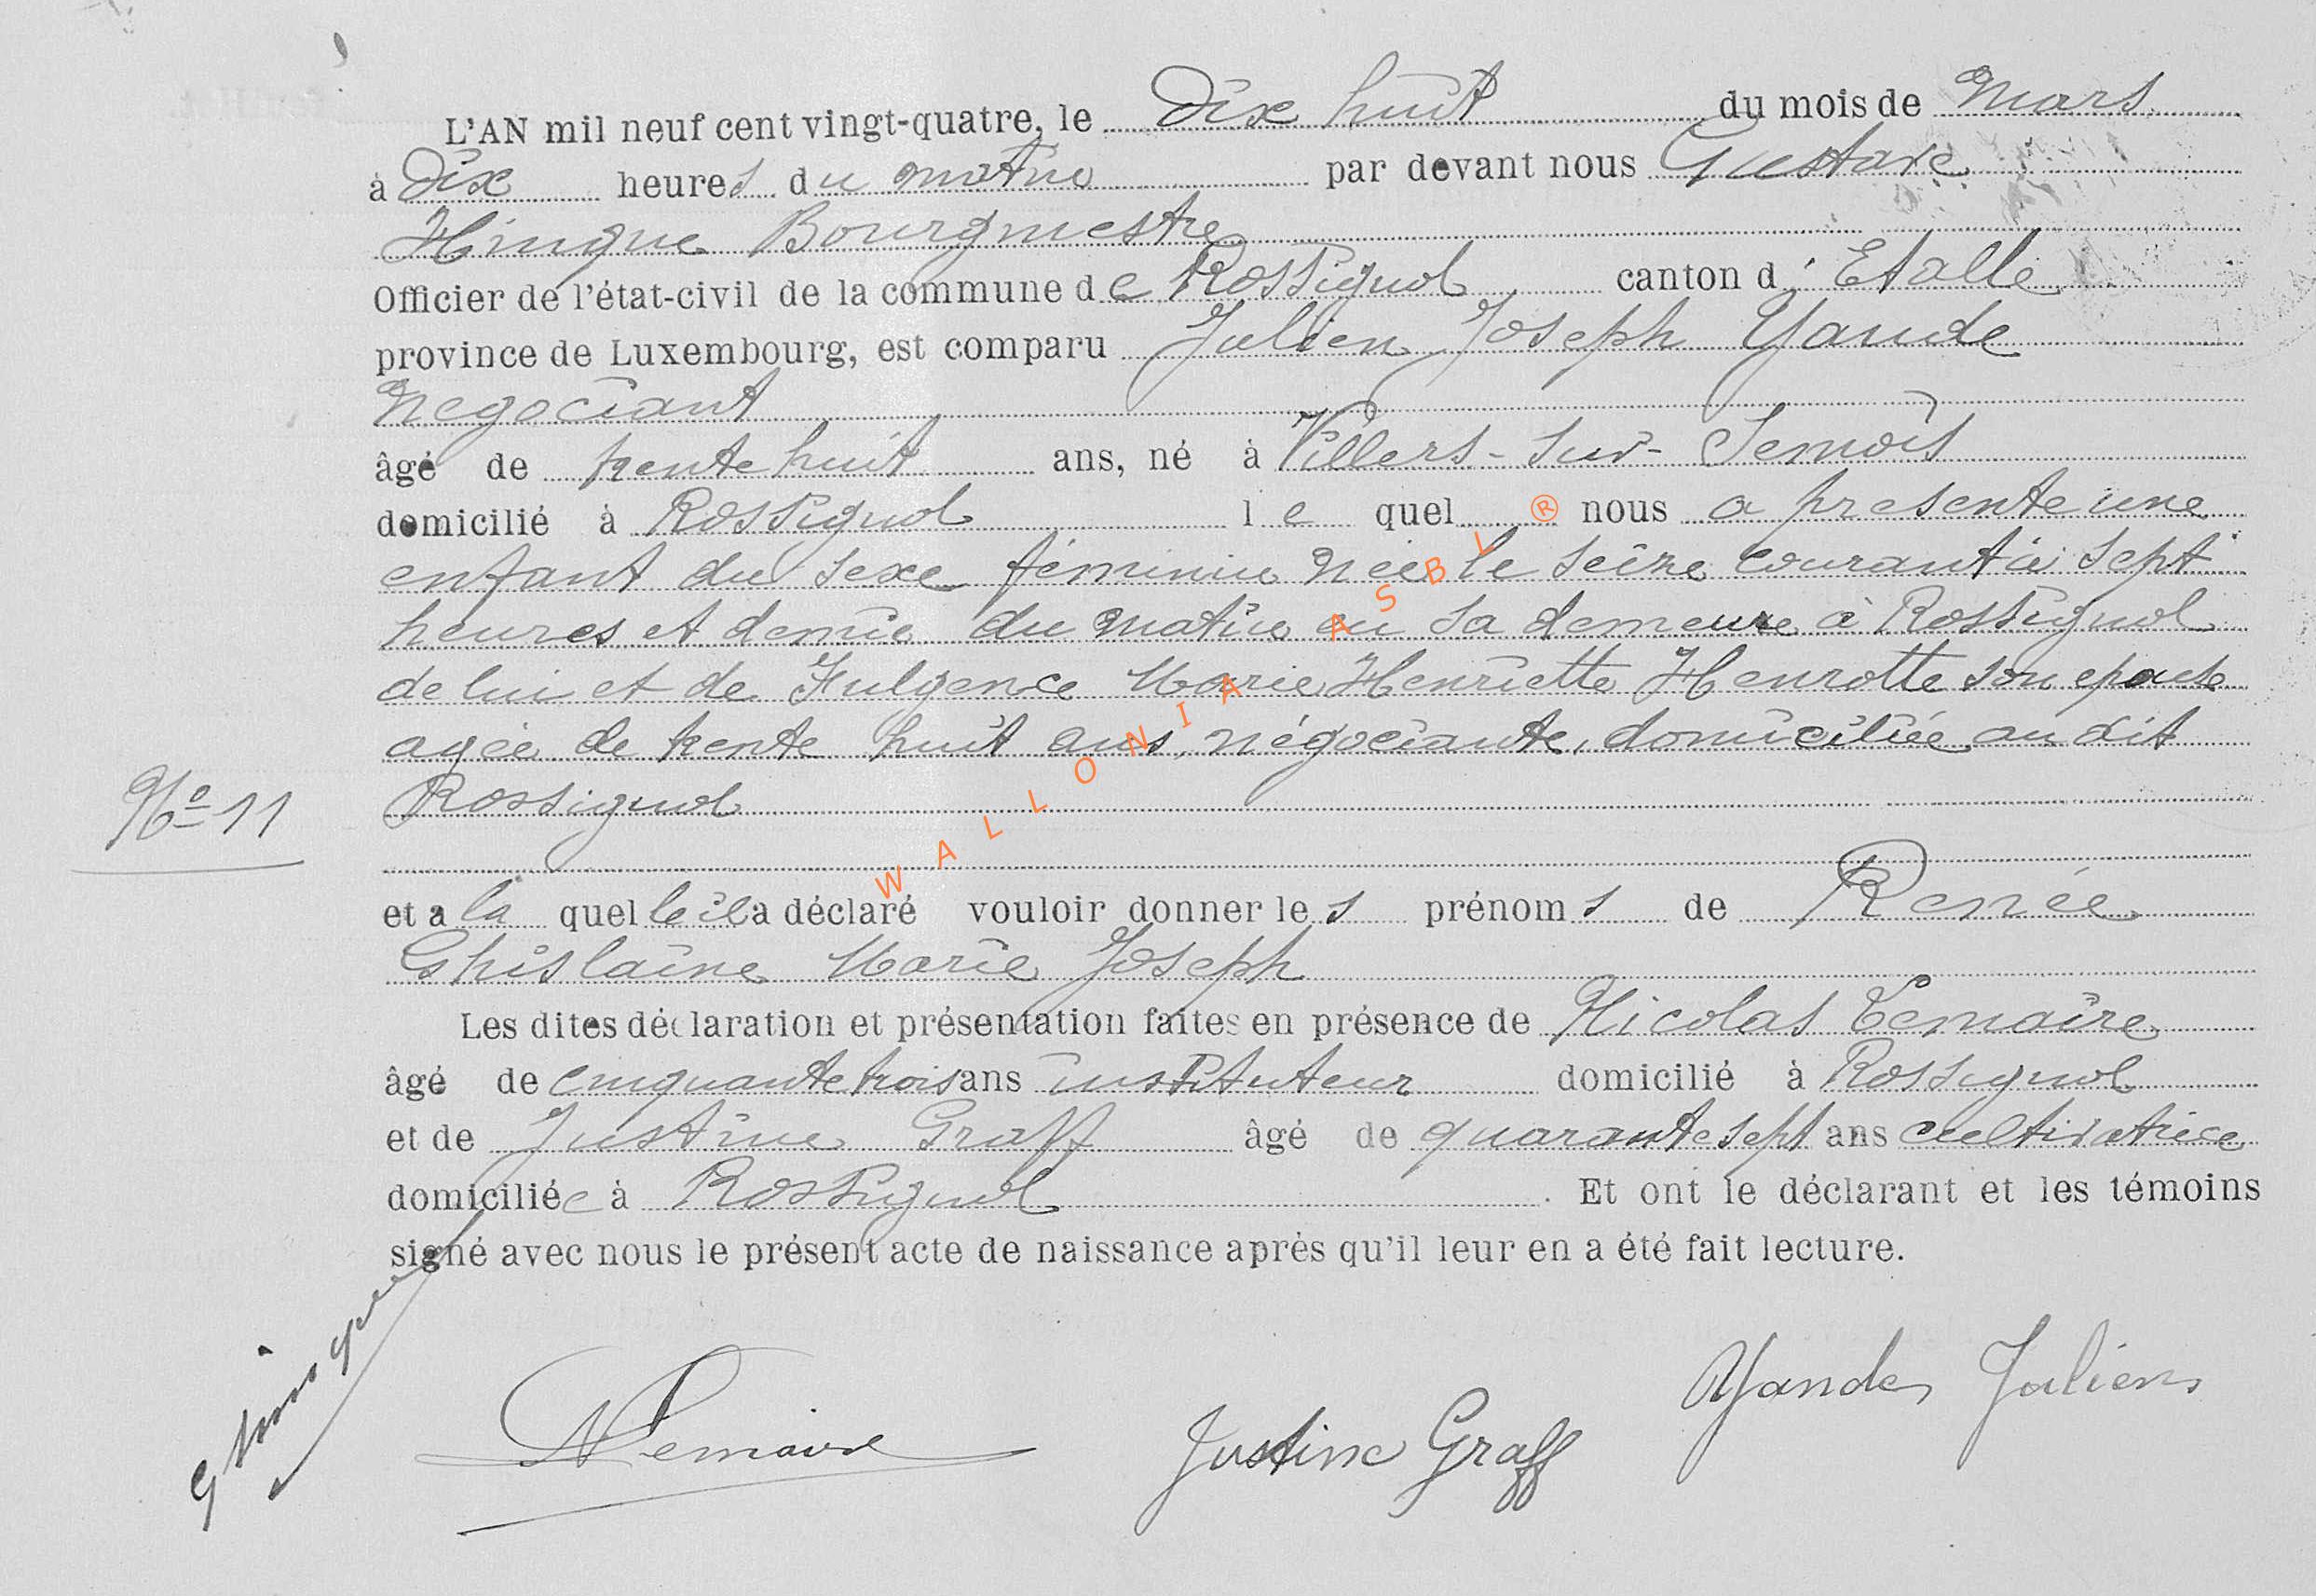 L'AN mil neuf cent vingt-quatre, le Dix huit du mois de Mars
à Dix heures du matin par devant nous Gustave
Hinque Bourgmestre
Officier de l'état-civil de la commune de Rossignol canton d'Etalle
province de Luxembourg, est comparu Julien Joseph Yande
Negociant
âgé de trente huit ans, né à Villers-sur-Semois
domicilié à Rossignol le quel nous a presente une
enfant du sexe féminin née le seize courant à sept
heures et demie du matin en sa demeure à Rossignol
de lui et de Fulgence Marie Henriette Henrotte son epouse
agée de trente huit ans, négociante, domiciliée au dit
Rossignol
No 11
et a la quelle il a déclaré vouloir donner les prénoms de Renée
Ghislaine Marie Joseph
Les dites déclaration et présentation faites en présence de Nicolas Lemaire
âgé de cinquante trois ans instituteur domicilié à Rossignol
et de Justine Graff âgé de quarante sept ans cultivatrice
domiciliée à Rossignol. Et ont le déclarant et les témoins
signé avec nous le présent acte de naissance après qu'il leur en a été fait lecture.
G Hinque
N Lemaire
Justine Graff
Yande Julien
WALLONIA ASBL ®